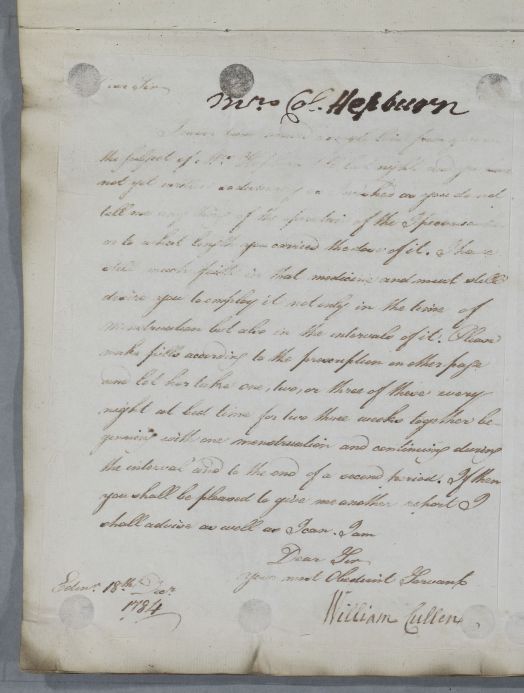 Dear Sir
Mrs Col. Hepburn
the subject of Mrs Hepburn last night and
not yet as you do not
tell me any thing of the operation of the Ipecacuanha
or to what length you carried the dose of it. I have
still much faith in that medicine and must still
desire you to employ it not only in the time of
menstruation but also in the intervals of it. Please
make pills according to the prescription on other page
and let her take one, two, or three of these every
night at bed time for two three weeks together be
gining with one menstruation and continuing during
the interval and to the end of a second period. If then
you shall be pleased to give me another report I
shall advise as well as I can. I am
Dear Sir
your most Obedient Servant
William Cullen
Edinr. 18th Decr
1784